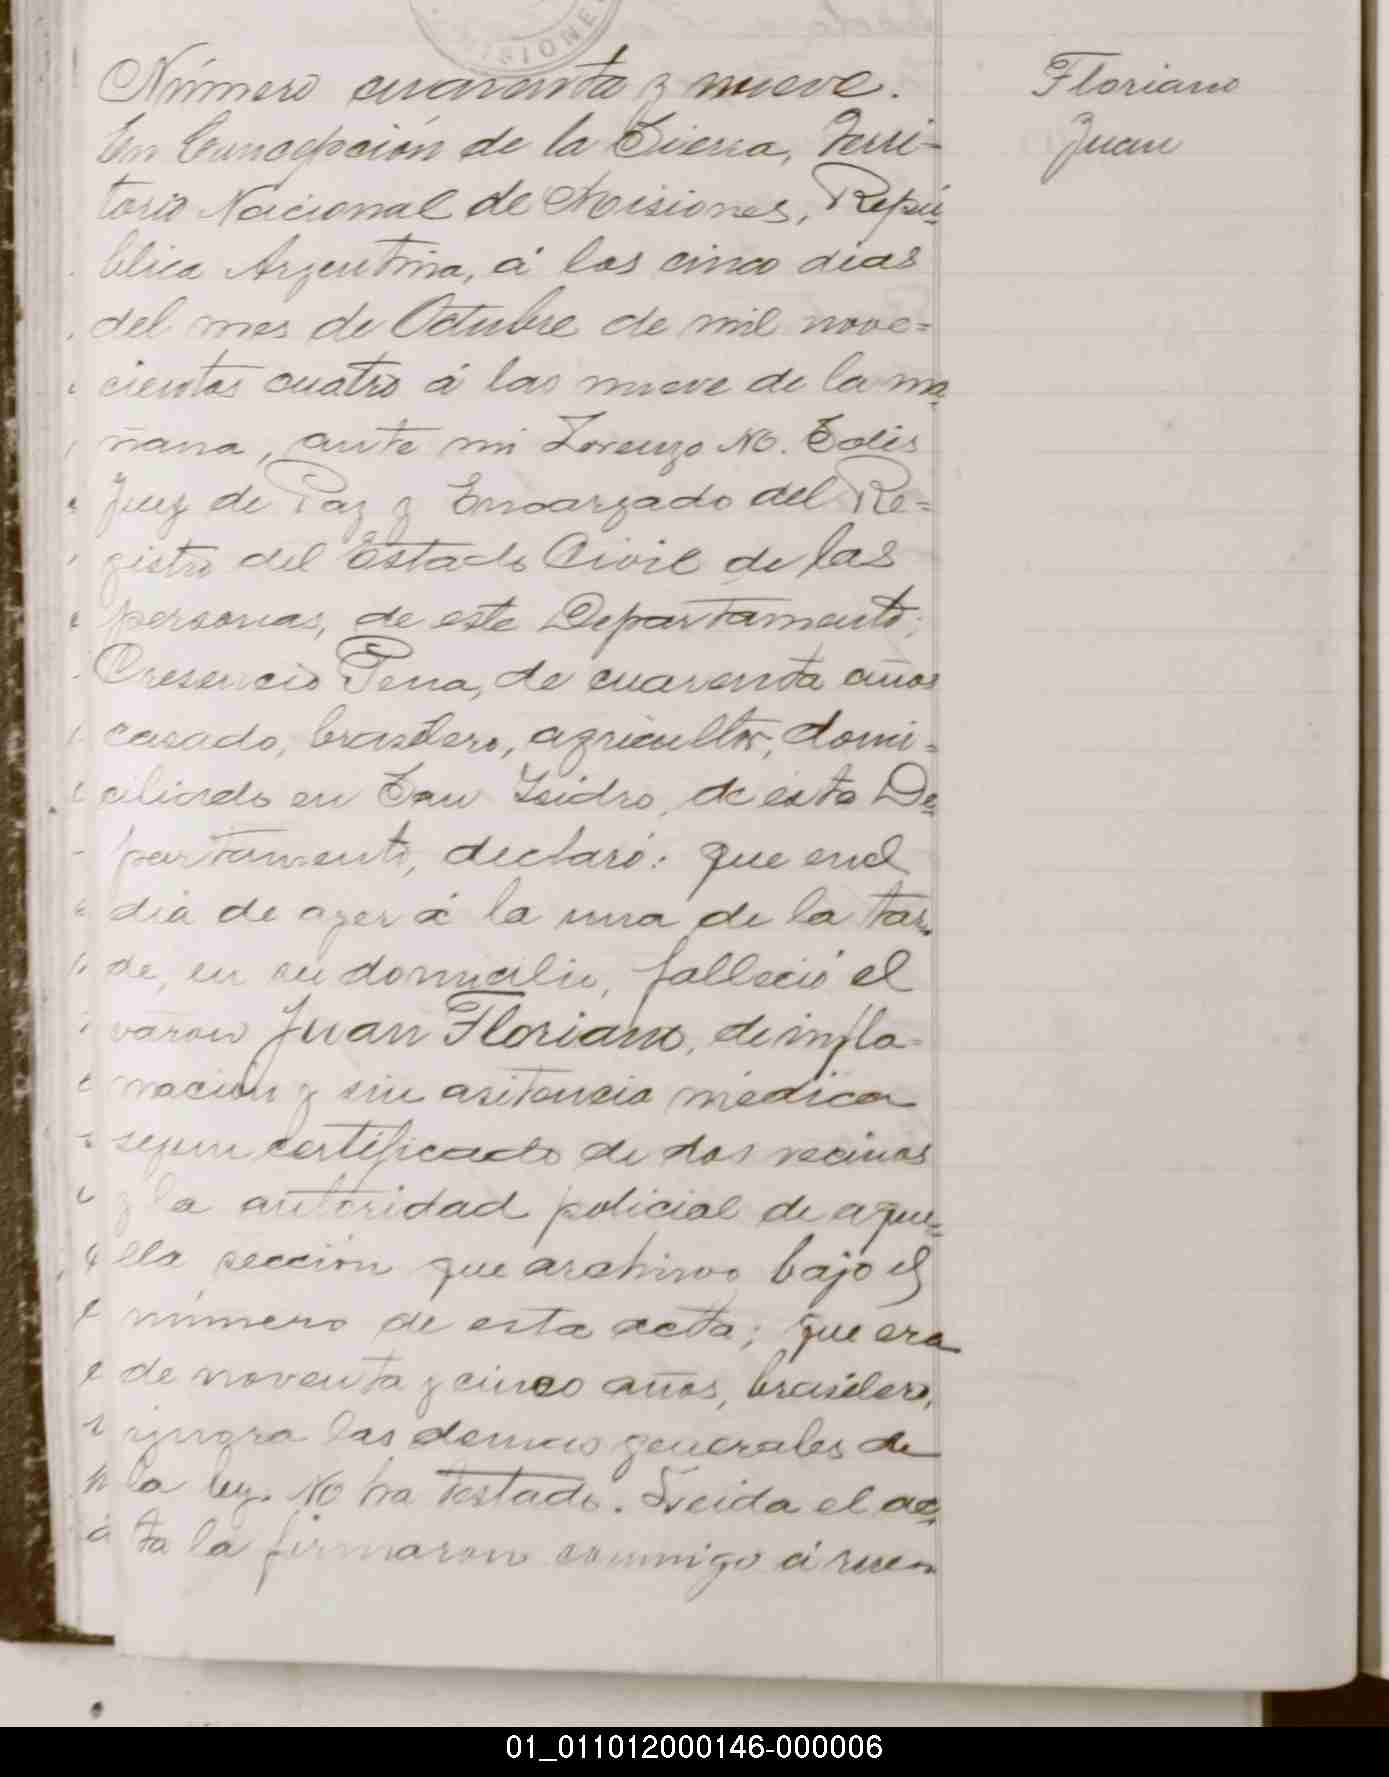 MISIONES
Número cuarenta y nueve.
Floriano
Juan
En Concepción de la Sierra, Terri-
torio Nacional de Misiones, Repú-
blica Argentina, á los cinco dias
del mes de Octubre de mil nove=
cientos cuatro á las nueve de la ma-
ñana, ante mi Lorenzo M. Solis
Juez de Paz y Encargado del Re=
gistro del Estado Civil de las
personas, de este Departamento;
Cresencio Pena, de cuarenta años
casado, brasilero, agricultor, domi=
ciliado en San Isidro, de ésta De-
partamento, declaró: que en el
dia de ayer á la una de la tar-
de, en su domicilio, falleció el
varon Juan Floriano, de infla-
nación y sin asitencia médica
segun certificado de dos vecinos
y la autoridad policial de aque=
lla sección que archivo bajo el
número de esta acta; que era
de noventa y cinco años, brasilero,
ignora las demas generales de
la ley. No ha testado. Leida el ac-
ta la firmaron conmigo á rue-
01_011012000146-000006